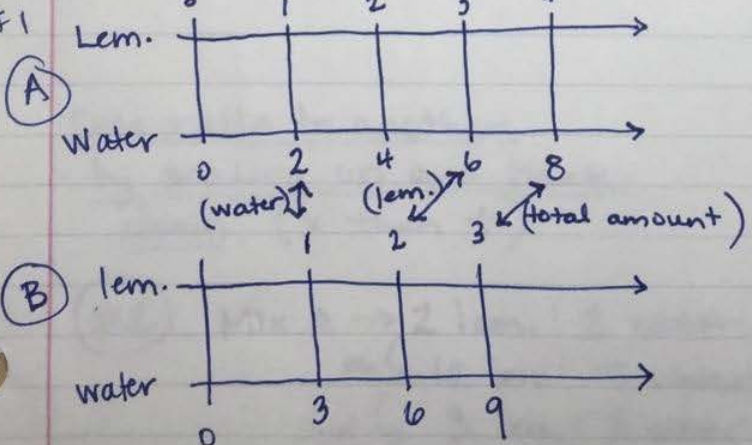 #1 Lem.
1 2 3
A
Water
0 2 4 6 8
(water) (lem.) (total amount)
1 2 3
B lem.
water
0 3 6 9